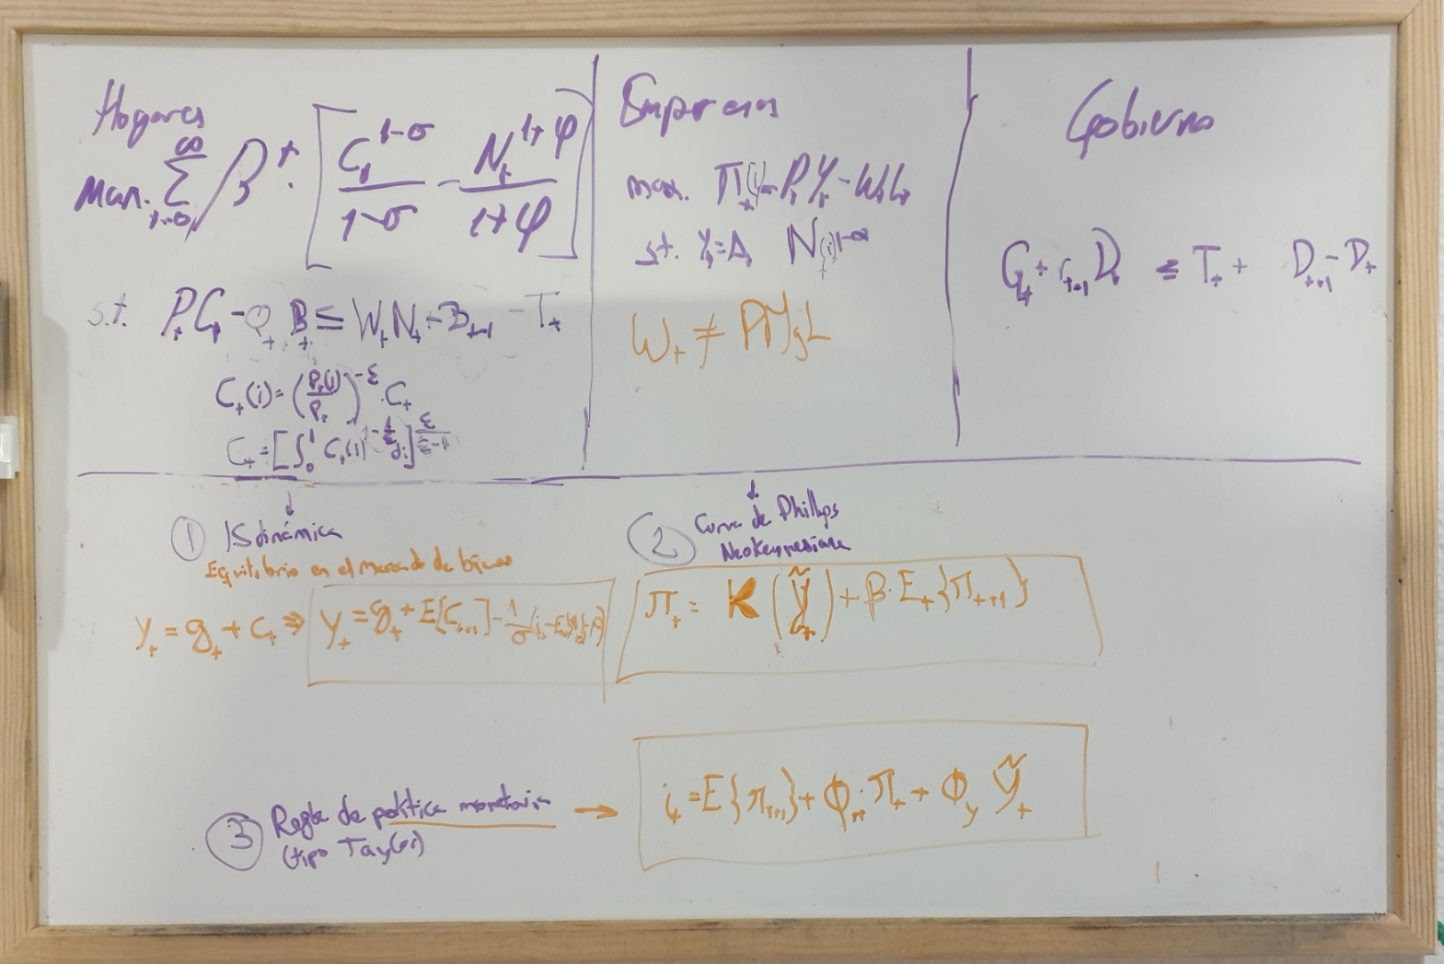 Hogares
Max. ∑_{t=0}^{∞} β^t · [C_t^{1-σ}/(1-σ) - N_t^{1+φ}/(1+φ)]
s.t. P_t C_t - Q_t B_t ≤ W_t N_t - B_{t-1} - T_t
C_t(i) = (P_t(i)/P_t)^{-ε} · C_t
C_t = [∫_0^1 C_t(i)^{1-1/ε} di]^{ε/(ε-1)}
Empresas
max. Π_t(i) = P_t Y_t - W_t L_t
st. Y_t = A_t N_t(i)^{1-α}
W_t ≠ PMgL
Gobierno
G_t + r_{t-1} D_t ≤ T_t + D_{t+1} - D_t
① IS dinámica
Equilibrio en el mercado de bienes
y_t = g_t + c_t ⇒ y_t = g_t + E[C_{t+1}] - 1/σ (i_t - E{π_{t+1}} - ρ)
② Curva de Phillips
Neokeynesiana
π_t = K (ỹ_t) + β · E_t{π_{t+1}}
③ Regla de política monetaria →
(tipo Taylor)
i_t = E{π_{t+1}} + ϕ_π · π_t + ϕ_y ỹ_t